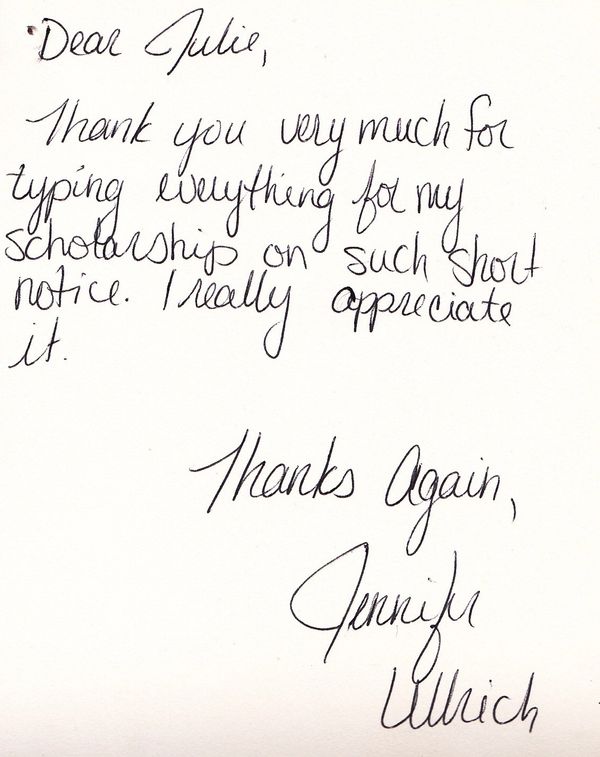 Dear Julie,
Thank you very much for
typing everything for my
scholarship on such short
notice. I really appreciate
it.
Thanks Again,
Jennifer
Ullrich